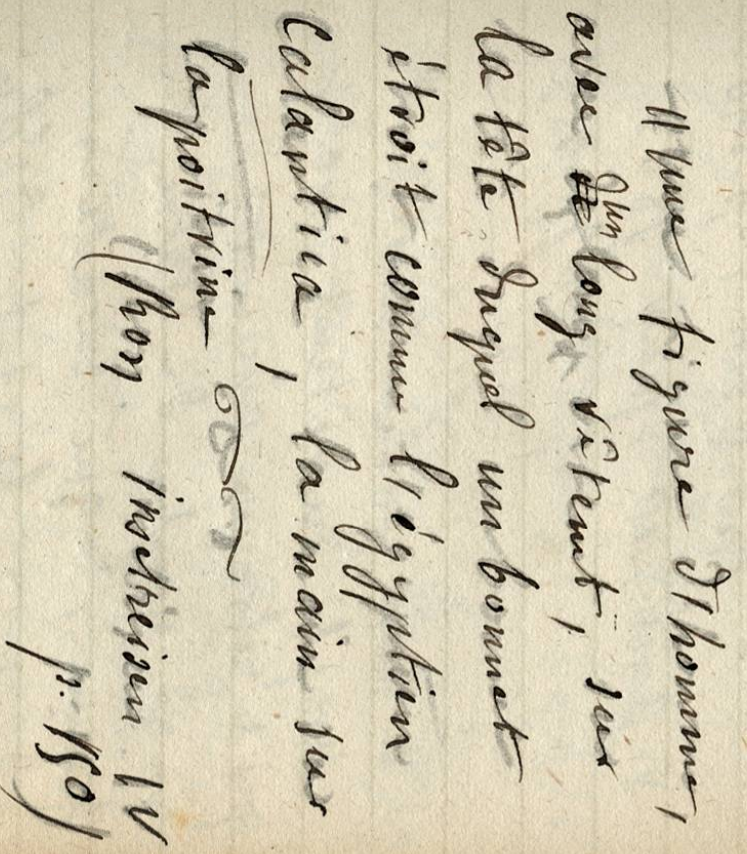 "Une figure d'homme,
avec d'un long vêtemt, sur
la tête duquel un bonnet
étroit comme l'égyptien
Calantica, la main sur
la poitrine
(Ross Inselreisen IV
p. 150)